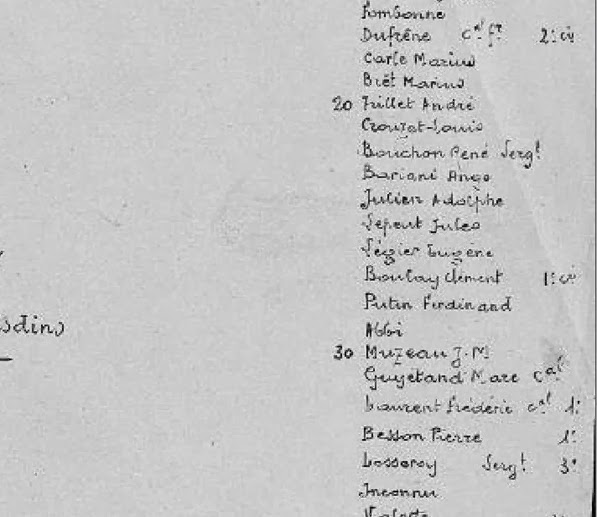 Pombonne
Dufrêne cal fr 2e cie
Carle Marius
Brêt Marius
20 Jullet André
Crouzat-Louis
Bouchon René Sergt
Bariani Ange
Julien Adolphe
Sepeut Jules
Ségier Eugène
Boulay Clément 1e cie
Putin Ferdinand
sdins
Abbi
30 Muzeau J.M
Guyétand Marc cal
Laurent Frédéric cal 1e
Besson Pierre 1e
Losseroy Sergt 3e
Inconnu